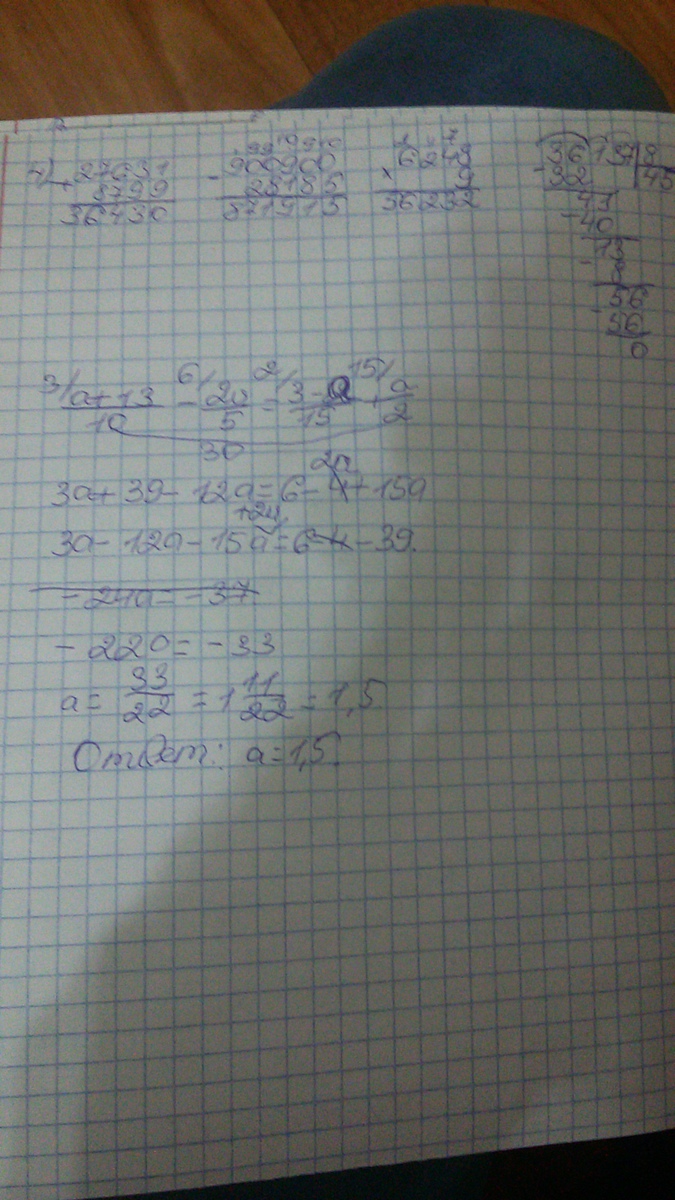 4) + 27631
8799
36430
- 900900
28185
871915
× 6248
9
36232
- 36137 | 8
32
45
41
- 40
13
- 8
56
- 56
0
3/ a+13 / 10 - 6/ 2a / 5 = 2/ 3-a / 15 + 15/ a / 2
30
2a
3a + 39 - 12a = 6 - 4 + 15a
+2a
3a - 12a - 15a = 6 - 4 - 39.
- 24a = - 37
- 22a = - 33
a = 33/22 = 1 11/22 = 1,5
Ответ: a = 1,5.